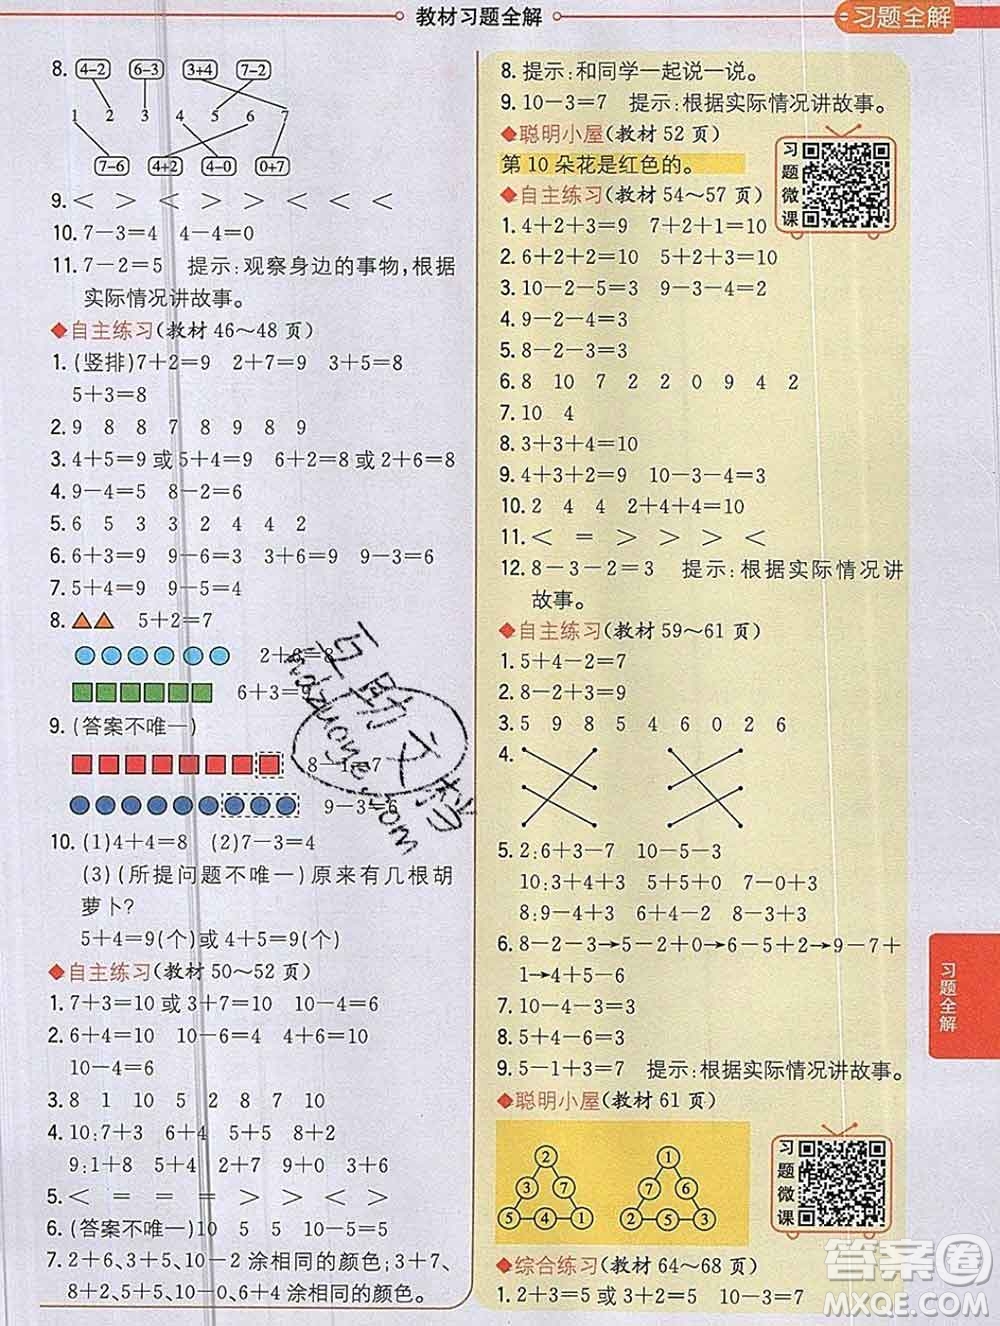 教材习题全解
习题全解
8. 4-2 6-3 3+4 7-2
1 2 3 4 5 6 7
7-6 4+2 4-0 0+7
9. < < < > > < < < <
10. 7-3=4 4-4=0
11. 7-2=5 提示:观察身边的事物,根据
实际情况讲故事。
◆自主练习(教材 46~48 页)
1. (竖排)7+2=9 2+7=9 3+5=8
5+3=8
2. 9 8 8 7 8 9 8 9
3. 4+5=9 或 5+4=9 6+2=8 或 2+6=8
4. 9-4=5 8-2=6
5. 6 5 3 3 2 4 4 2
6. 6+3=9 9-6=3 3+6=9 9-3=6
7. 5+4=9 9-5=4
8. 5+2=7
2+6=8
6+3=9
9. (答案不唯一)
8-1=7
9-3=6
10. (1)4+4=8 (2)7-3=4
(3)(所提问题不唯一)原来有几根胡
萝卜?
5+4=9(个)或 4+5=9(个)
◆自主练习(教材 50~52 页)
1. 7+3=10 或 3+7=10 10-4=6
2. 6+4=10 10-6=4 4+6=10
10-4=6
3. 8 1 10 5 2 8 7 10
4. 10:7+3 6+4 5+5 8+2
9:1+8 5+4 2+7 6+3
5. < = = = > > > <
6. (答案不唯一)10 5 5 10-5=5
7. 2+6,3+5,10-2 涂相同的颜色;3+7、
8+2,5+5,6+4 涂相同的颜色。
8. 提示:和同学一起说一说。
9. 10-3=7 提示:根据实际情况讲故事。
◆聪明小屋(教材 52 页)
第 10 朵花是红色的。
习题微课
◆自主练习(教材 54~57 页)
1. 4+2+3=9 7+2+1=10
2. 6+2+2=10 5+2+2=9
3. 10-2-5=3 9-2-4=3
4. 9-2-4=3
5. 8-2-3=3
6. 8 10 7 2 2 0 9 4 2
7. 10 4
8. 3+3+4=10
9. 4+3+2=9 10-3-4=3
10. 2 4 4 2+4+4=10
11. < = > > > <
12. 8-3-2=3 提示:根据实际情况讲
故事。
◆自主练习(教材 59~61 页)
1. 5+4-2=7
2. 8-2+3=9
3. 5 9 8 5 4 6 0 2 6
4.
5. 2:6+3-7 10-5-3
10:4+3+3 5+5+0 7-0+3
8:9-4+3 6-4+6 8-3+3
6. 8-2-3→5-2+0→6-5+2→9-7+
1→4+5-6
7. 10-4-3=3
8. 5+4-6=3
9. 5-1+3=7 提示:根据实际情况讲故事。
◆聪明小屋(教材 61 页)
2
3 7
5 4 1
1
7 4
2 5 3
习题微课
◆综合练习(教材 64~68 页)
1. 2+3=5 或 3+2=5 10-3=7
习题全解
答案圈
MXQE.COM